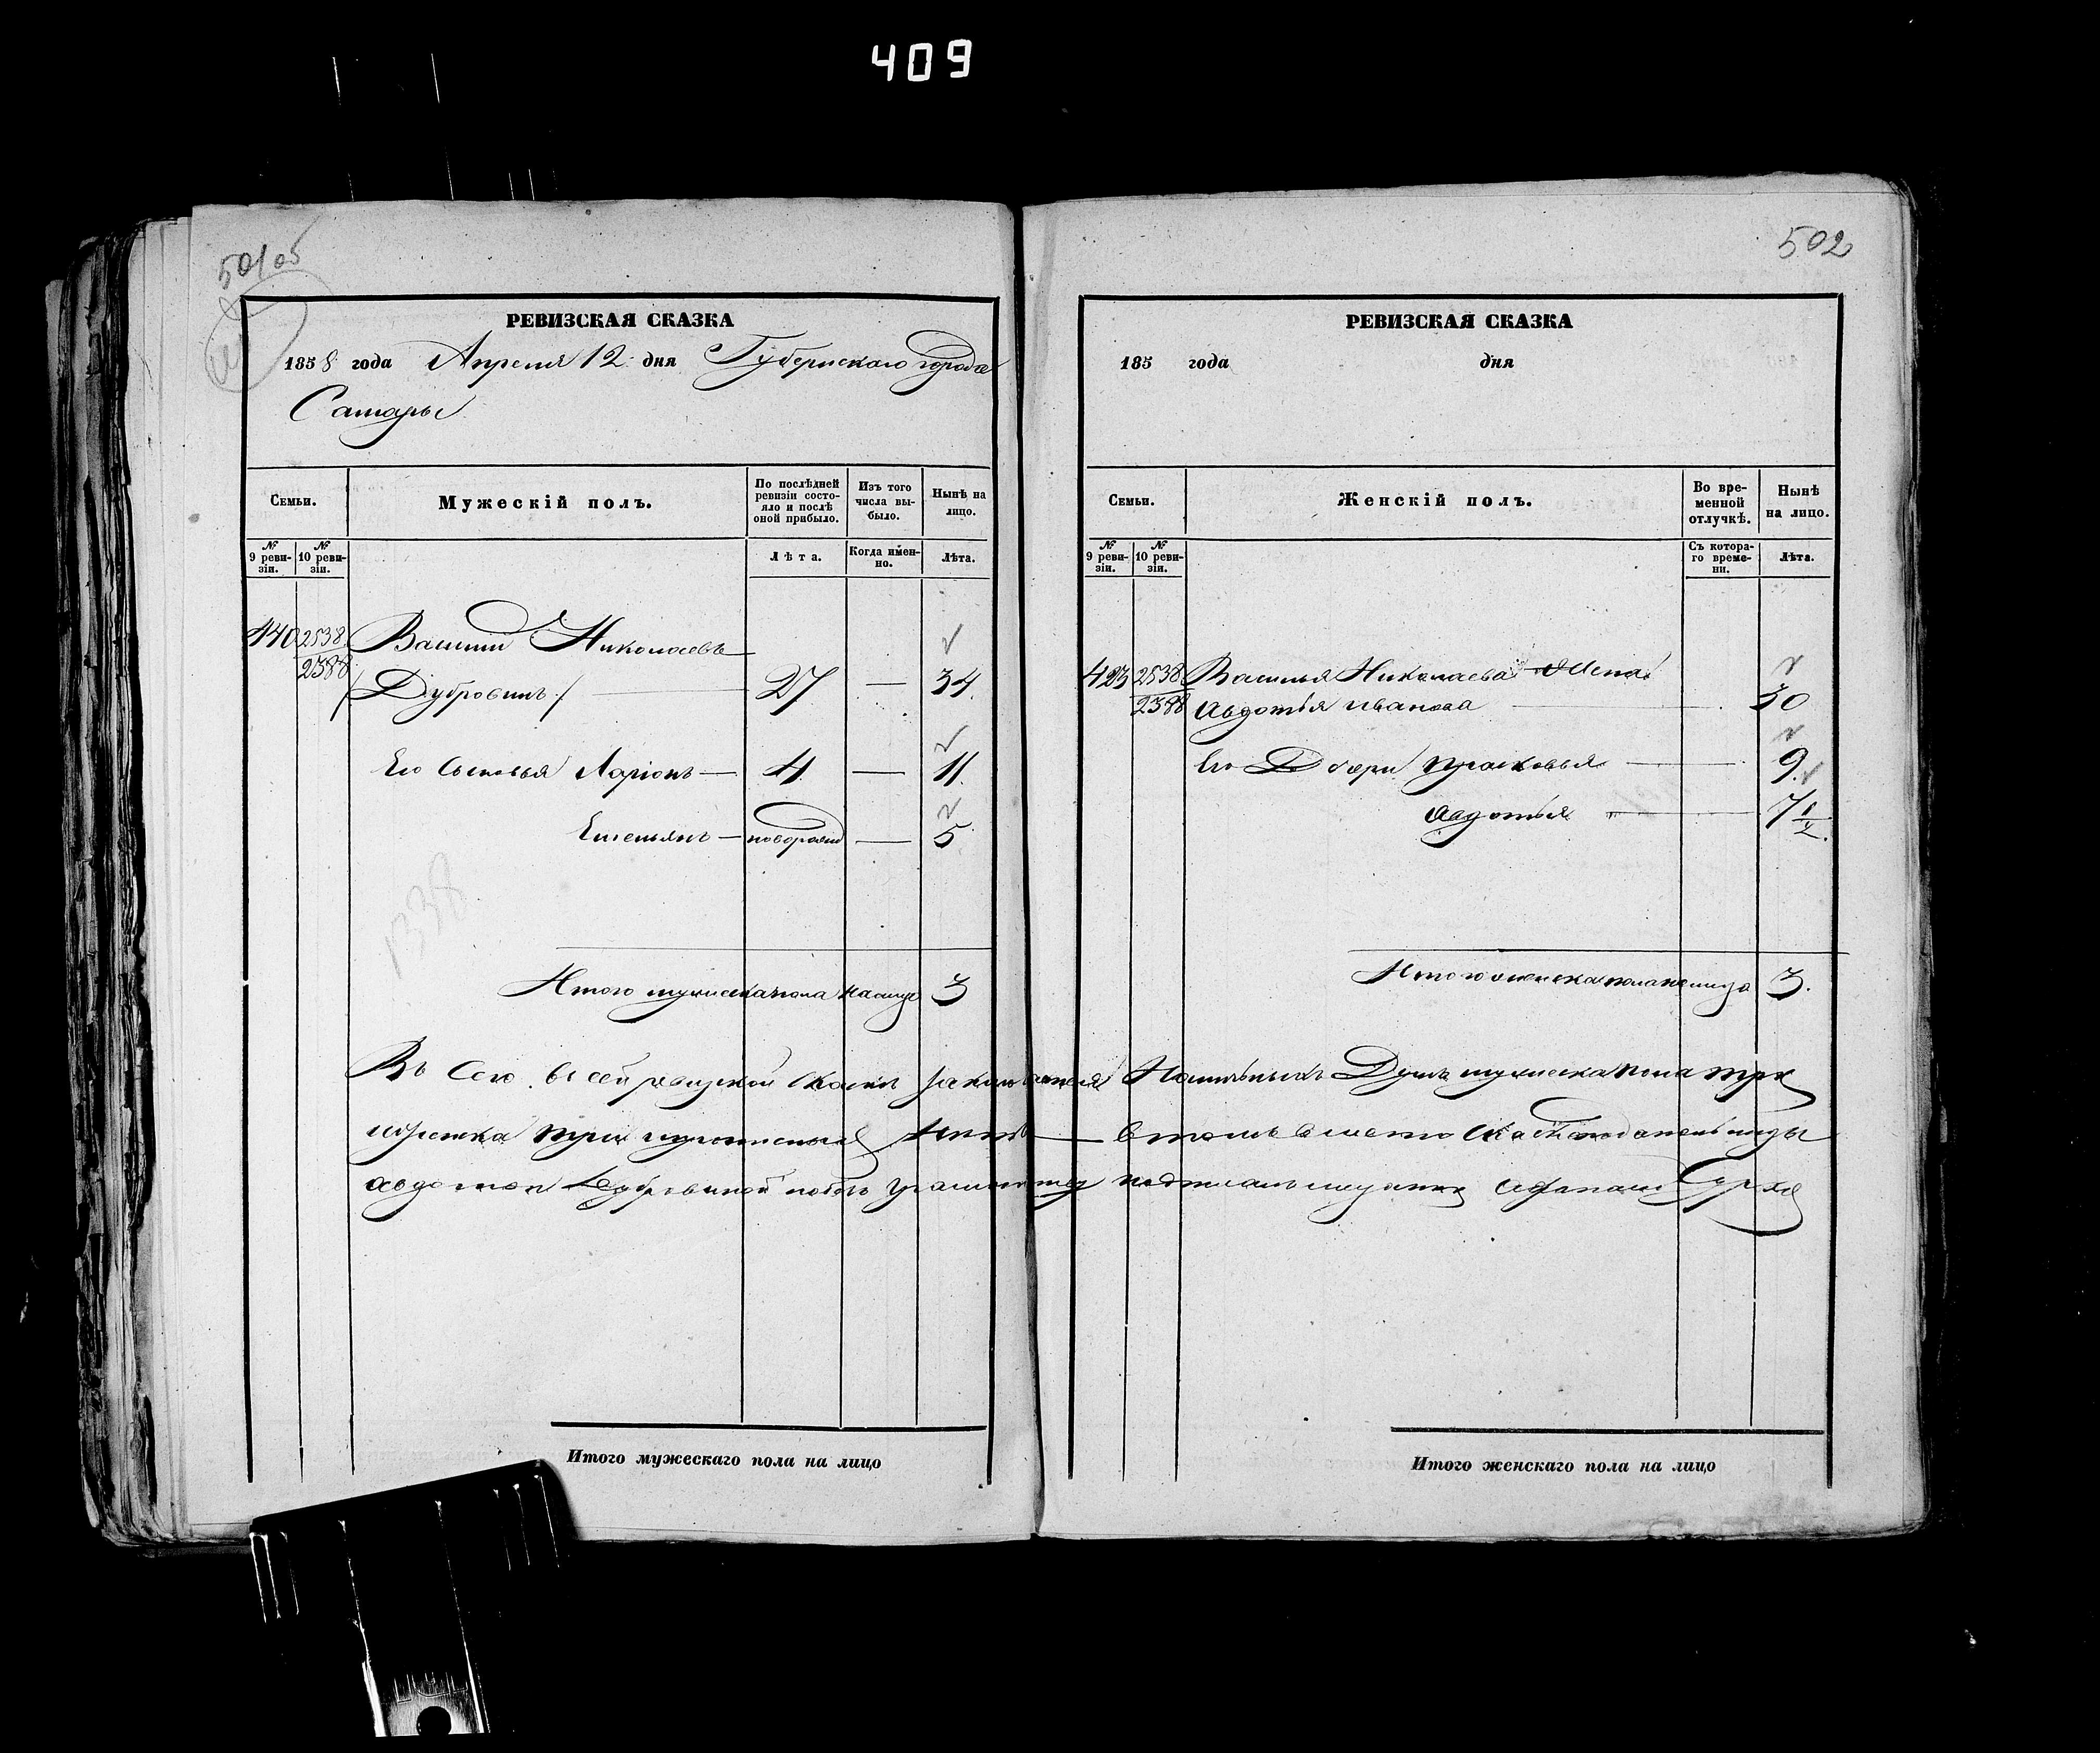 409
501 об
РЕВИЗСКАЯ СКАЗКА
1858 года Апреля 12 дня Губернскаго города
Самары
Семьи.
Мужескій полъ.
По послѣдней ревизіи состояло и послѣ оной прибыло.
Изъ того числа выбыло.
Нынѣ на лицо.
№ 9 ревизіи.
№ 10 ревизіи.
Лѣта.
Когда именно.
Лѣта.
440 2538 Василий Николаевъ
2388 /Дубровинъ/ 27 — 34.
Его Сыновья Ларіонъ — 4. — 11.
Емельянъ — новорожд — 5
1338
Итого мужеска пола на лицо 3
502
РЕВИЗСКАЯ СКАЗКА
185 года дня
Семьи.
Женскій полъ.
Во временной отлучкѣ.
Нынѣ на лицо.
№ 9 ревизіи.
№ 10 ревизіи.
Съ котораго времени.
Лѣта.
423 2538 Василья Николаева Жена
2388 Авдотья Иванова 30
Его Дочери Прасковья 9.
Авдотья 7 1/2.
Итого женска пола на лицо 3.
Въ Сей ревизской Сказки заключается Наличныхъ Душъ мужеска пола три
женска три — въ томъ вместо Сказкоподательницы
Авдотьи Дубровиной подписалъ мещанинъ
Итого мужескаго пола на лицо
Итого женскаго пола на лицо